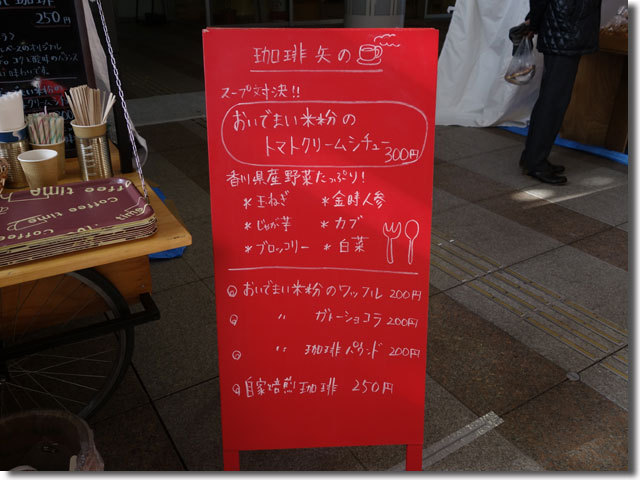 珈琲 矢の
スープ対決!!
おいでまい米粉の
トマトクリームシチュー
300円
香川県産野菜たっぷり!
*玉ねぎ *金時人参
*じゃが芋 *カブ
*ブロッコリー *白菜
おいでまい米粉のワッフル 200円
〃 ガトーショコラ 200円
〃 珈琲パウンド 200円
自家焙煎珈琲 250円
珈琲
250円
Coffee time